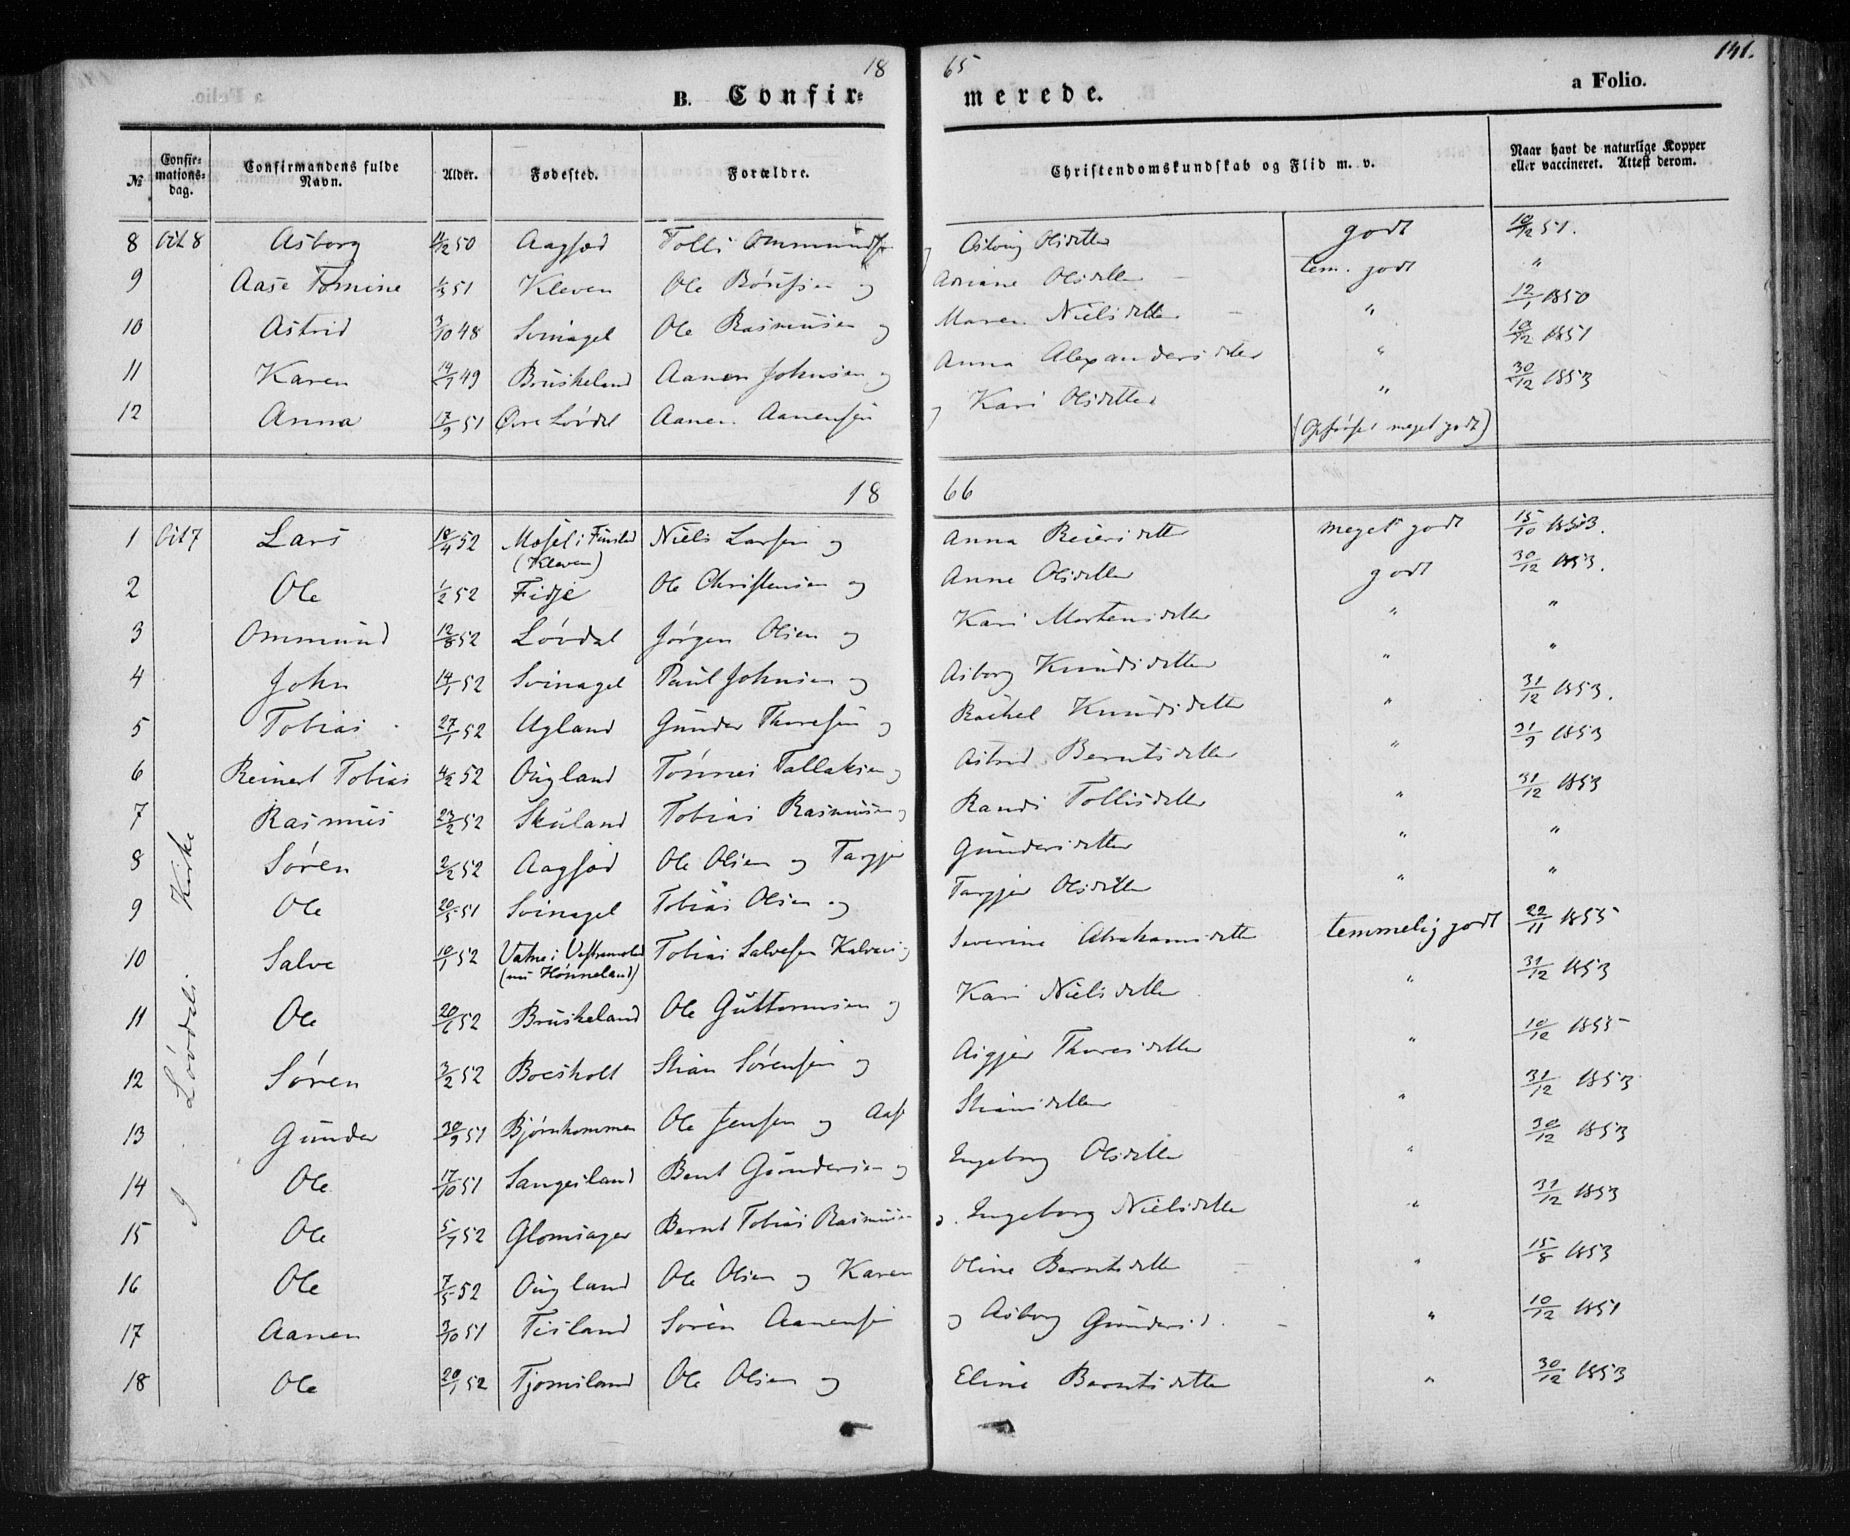 18 65 141.
B. Confir- merede. a Folio.
№ Confir-mations-dag. Confirmandens fulde Navn. Alder. Fødested. Forældre. Christendomskundskab og Flid m. v. Naar havt de naturlige Kopper eller vaccineret. Attest derom.
8 Oct 8 Asborg 50 Aagsæd Tolli Ommundsen og Olsdatter godt 10/12 51.
9 Aase Tomine 1/3 51 Kleven Ole og Olsdatter tem. godt "
10 Astrid 3/10 48 Svinagel Ole Rasmusen og Maren Nielsdatter " 12/1 1850
11 Karen 14/7 49 Bruskeland Aanen Johnsen og Anna Alexandersdatter " 10/12 1851
12 Anna 17/9 51 Øvre Løvdal Aanen Aanensen og Kari Olsdatter " 30/12 1853
(Opførsel meget godt)
18 66
1 Oct 7 Lars 18/4 52 Mosel i Finsland (Kleven) Niels Larsen og Anna Reiersdatter meget godt 15/10 1853.
2 Ole 1/2 52 Fidje Ole Christensen og Anne Olsdatter godt 30/12 1853.
3 Ommund 12/8 52 Løvdal Jørgen Olsen og Kari Mortensdatter " "
4 John 14/1 52 Svinagel Paul Johnsen og Asborg Knudsdatter " "
5 Tobias 27/1 52 Ugland Gunder Thoresen og Rachel Knudsdatter " 31/12 1853.
6 Reinert Tobias 4/2 52 Øugland Tønnes Tallaksen og Astrid Berntsdatter " 31/9 1853
7 Rasmus 23/2 52 Skuland Tobias Rasmusen og Randi Tollisdatter " 31/12 1853
8 Søren 2/2 52 Aagsæd Ole Olsen og Targjer Gundersdatter " "
9 Ole 20/5 51 Svinagel Tobias Olsen og Targjer Olsdatter " "
10 Salve 10/1 52 Vatne i (nu Hønneland) Tobias Salvesen og Severine Abrahamsdatter temmelig godt 22/11 1855
11 Ole 20/6 52 Bruskeland Ole Guttormsen og Kari Nielsdatter " 31/12 1853
12 Søren 3/2 52 Boesholt Stian Sørensen og Asgjer Thoresdatter " 10/12 1855
13 Gunder 30/9 51 Bjørnkommen Ole Jensen og Aase Stiansdatter " 31/12 1853
14 Ole 17/10 51 Sangesland Bent Gundersen og Ingeborg Olsdatter " 30/12 1853
15 Ole 5/7 52 Glomsager Bernt Tobias Rasmusen o. Ingeborg Nielsdatter " 31/12 1853
16 Ole 7/5 52 Øugland Ole Olsen og Karen Oline Berntsdatter " 15/8 1853
17 Aanen 3/10 51 Tisland Søren Aanensen og Asborg Gundersd. " 10/12 1851
18 Ole 20/1 52 Tjomsland Ole Olsen og Eline Berntsdatter " 30/12 1853
I Løvdals Kirke